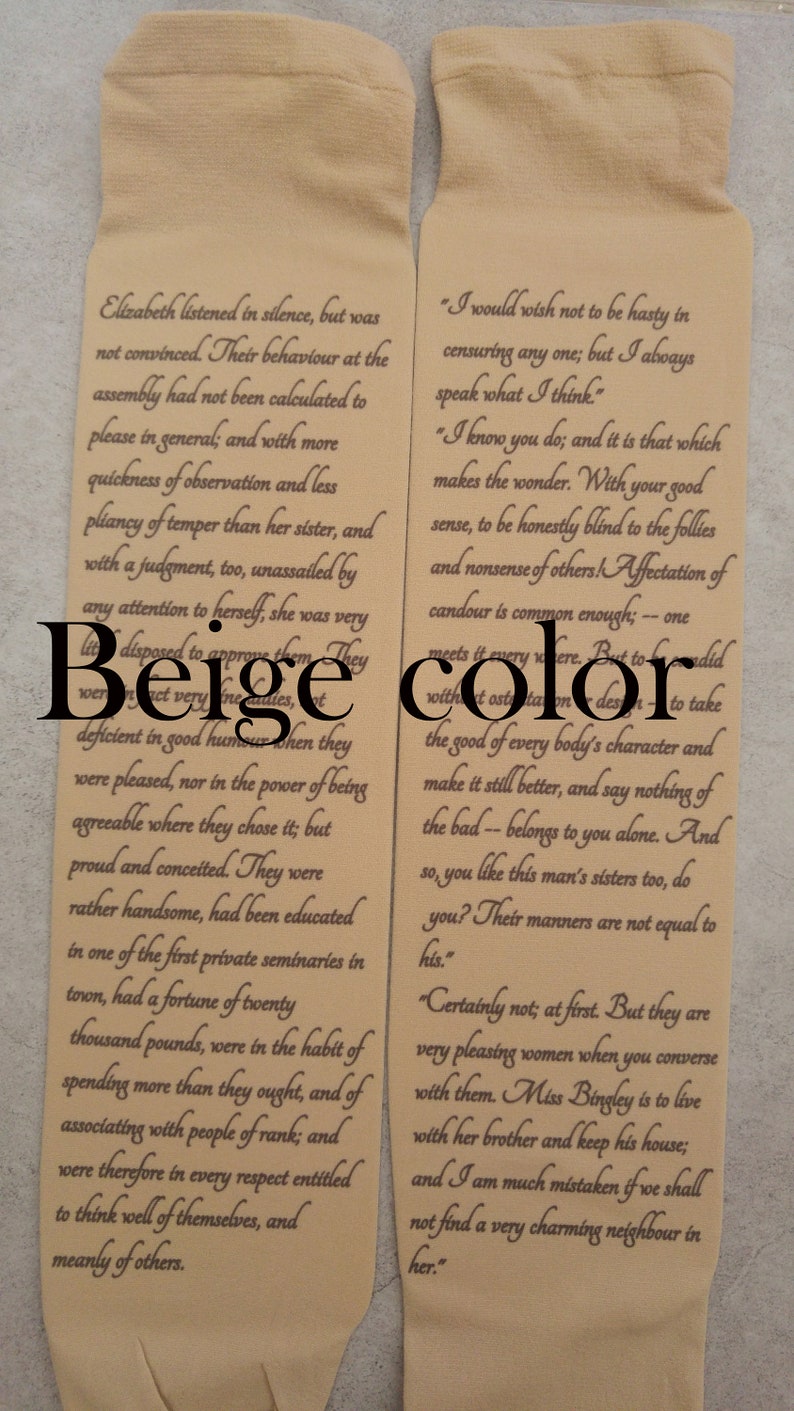 Elizabeth listened in silence, but was
not convinced. Their behaviour at the
assembly had not been calculated to
please in general; and with more
quickness of observation and less
pliancy of temper than her sister, and
with a judgment, too, unassailed by
any attention to herself, she was very
little disposed to approve them. They
were in fact very fine ladies, not
deficient in good humour when they
were pleased, nor in the power of being
agreeable where they chose it; but
proud and conceited. They were
rather handsome, had been educated
in one of the first private seminaries in
town, had a fortune of twenty
thousand pounds, were in the habit of
spending more than they ought, and of
associating with people of rank; and
were therefore in every respect entitled
to think well of themselves, and
meanly of others.
"I would wish not to be hasty in
censuring any one; but I always
speak what I think."
"I know you do; and it is that which
makes the wonder. With your good
sense, to be honestly blind to the follies
and nonsense of others! Affectation of
candour is common enough; -- one
meets it every where. But to be candid
without ostentation or design -- to take
the good of every body's character and
make it still better, and say nothing of
the bad -- belongs to you alone. And
so, you like this man's sisters too, do
you? Their manners are not equal to
his."
"Certainly not; at first. But they are
very pleasing women when you converse
with them. Miss Bingley is to live
with her brother and keep his house;
and I am much mistaken if we shall
not find a very charming neighbour in
her."
Beige color